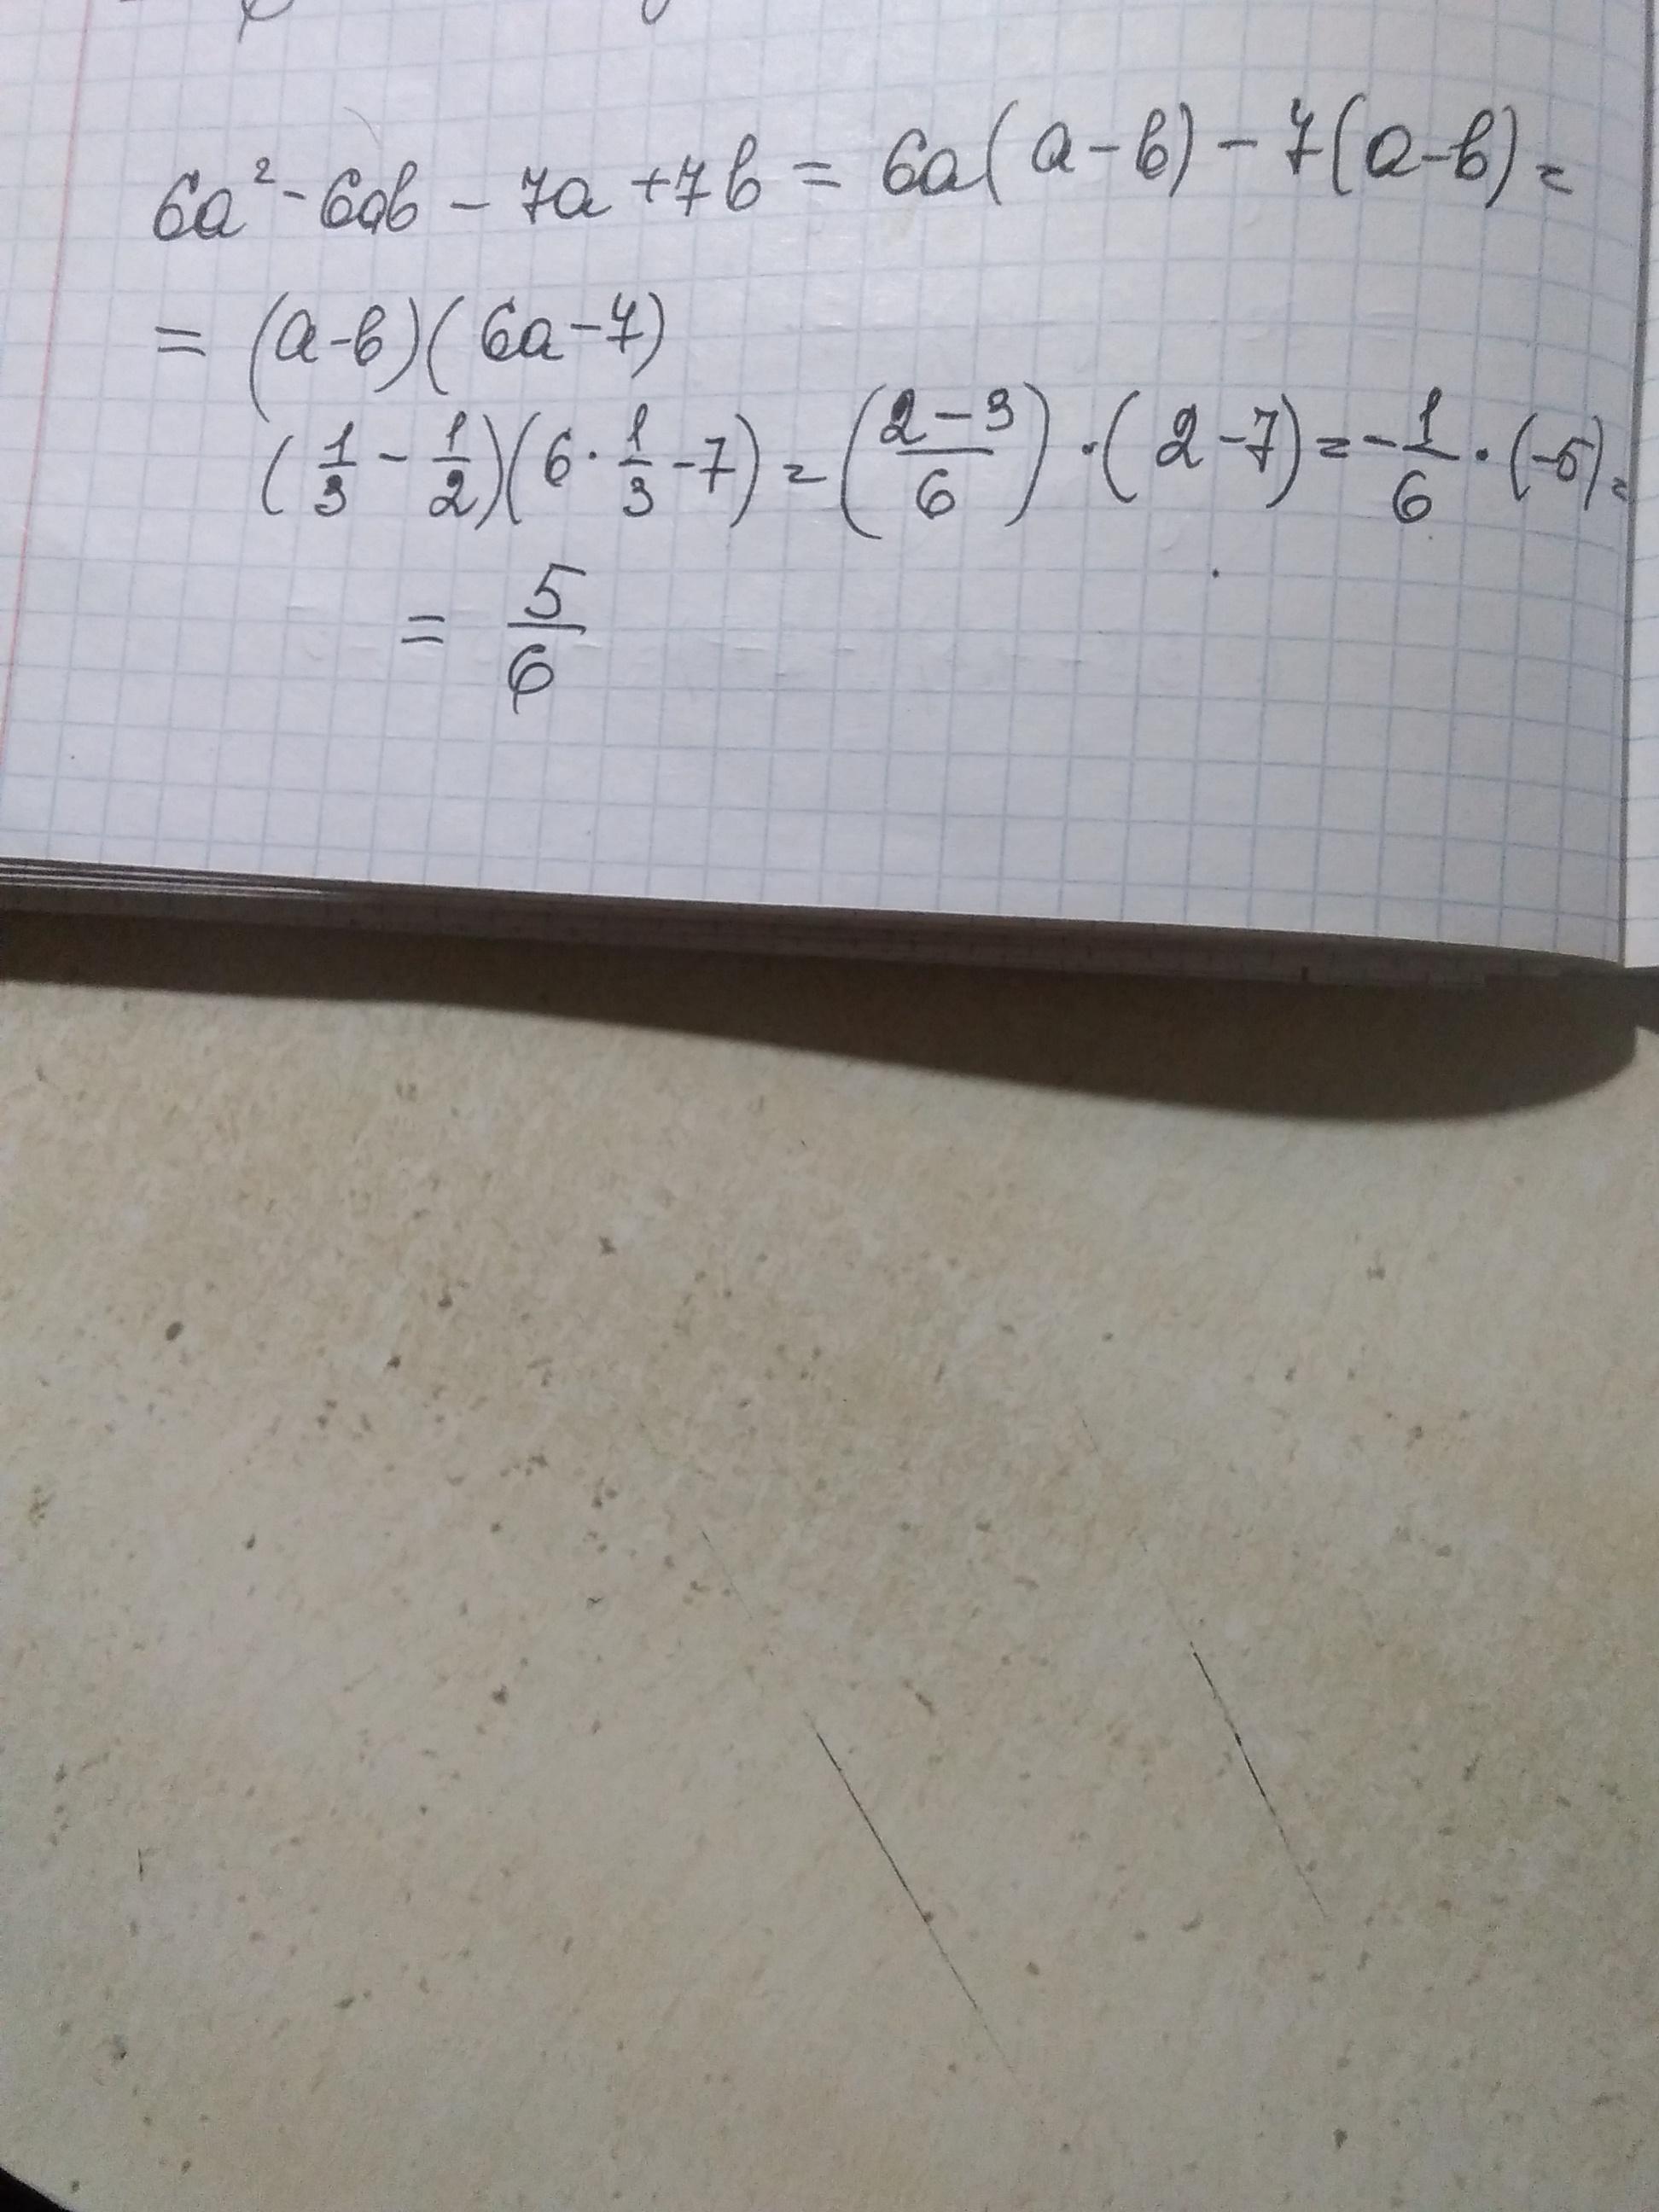 6a² - 6ab - 7a + 7b = 6a(a-b) - 7(a-b) =
= (a-b)(6a-7)
(1/3 - 1/2)(6·1/3 - 7) = ((2-3)/6)·(2-7) = -1/6·(-5) =
= 5/6